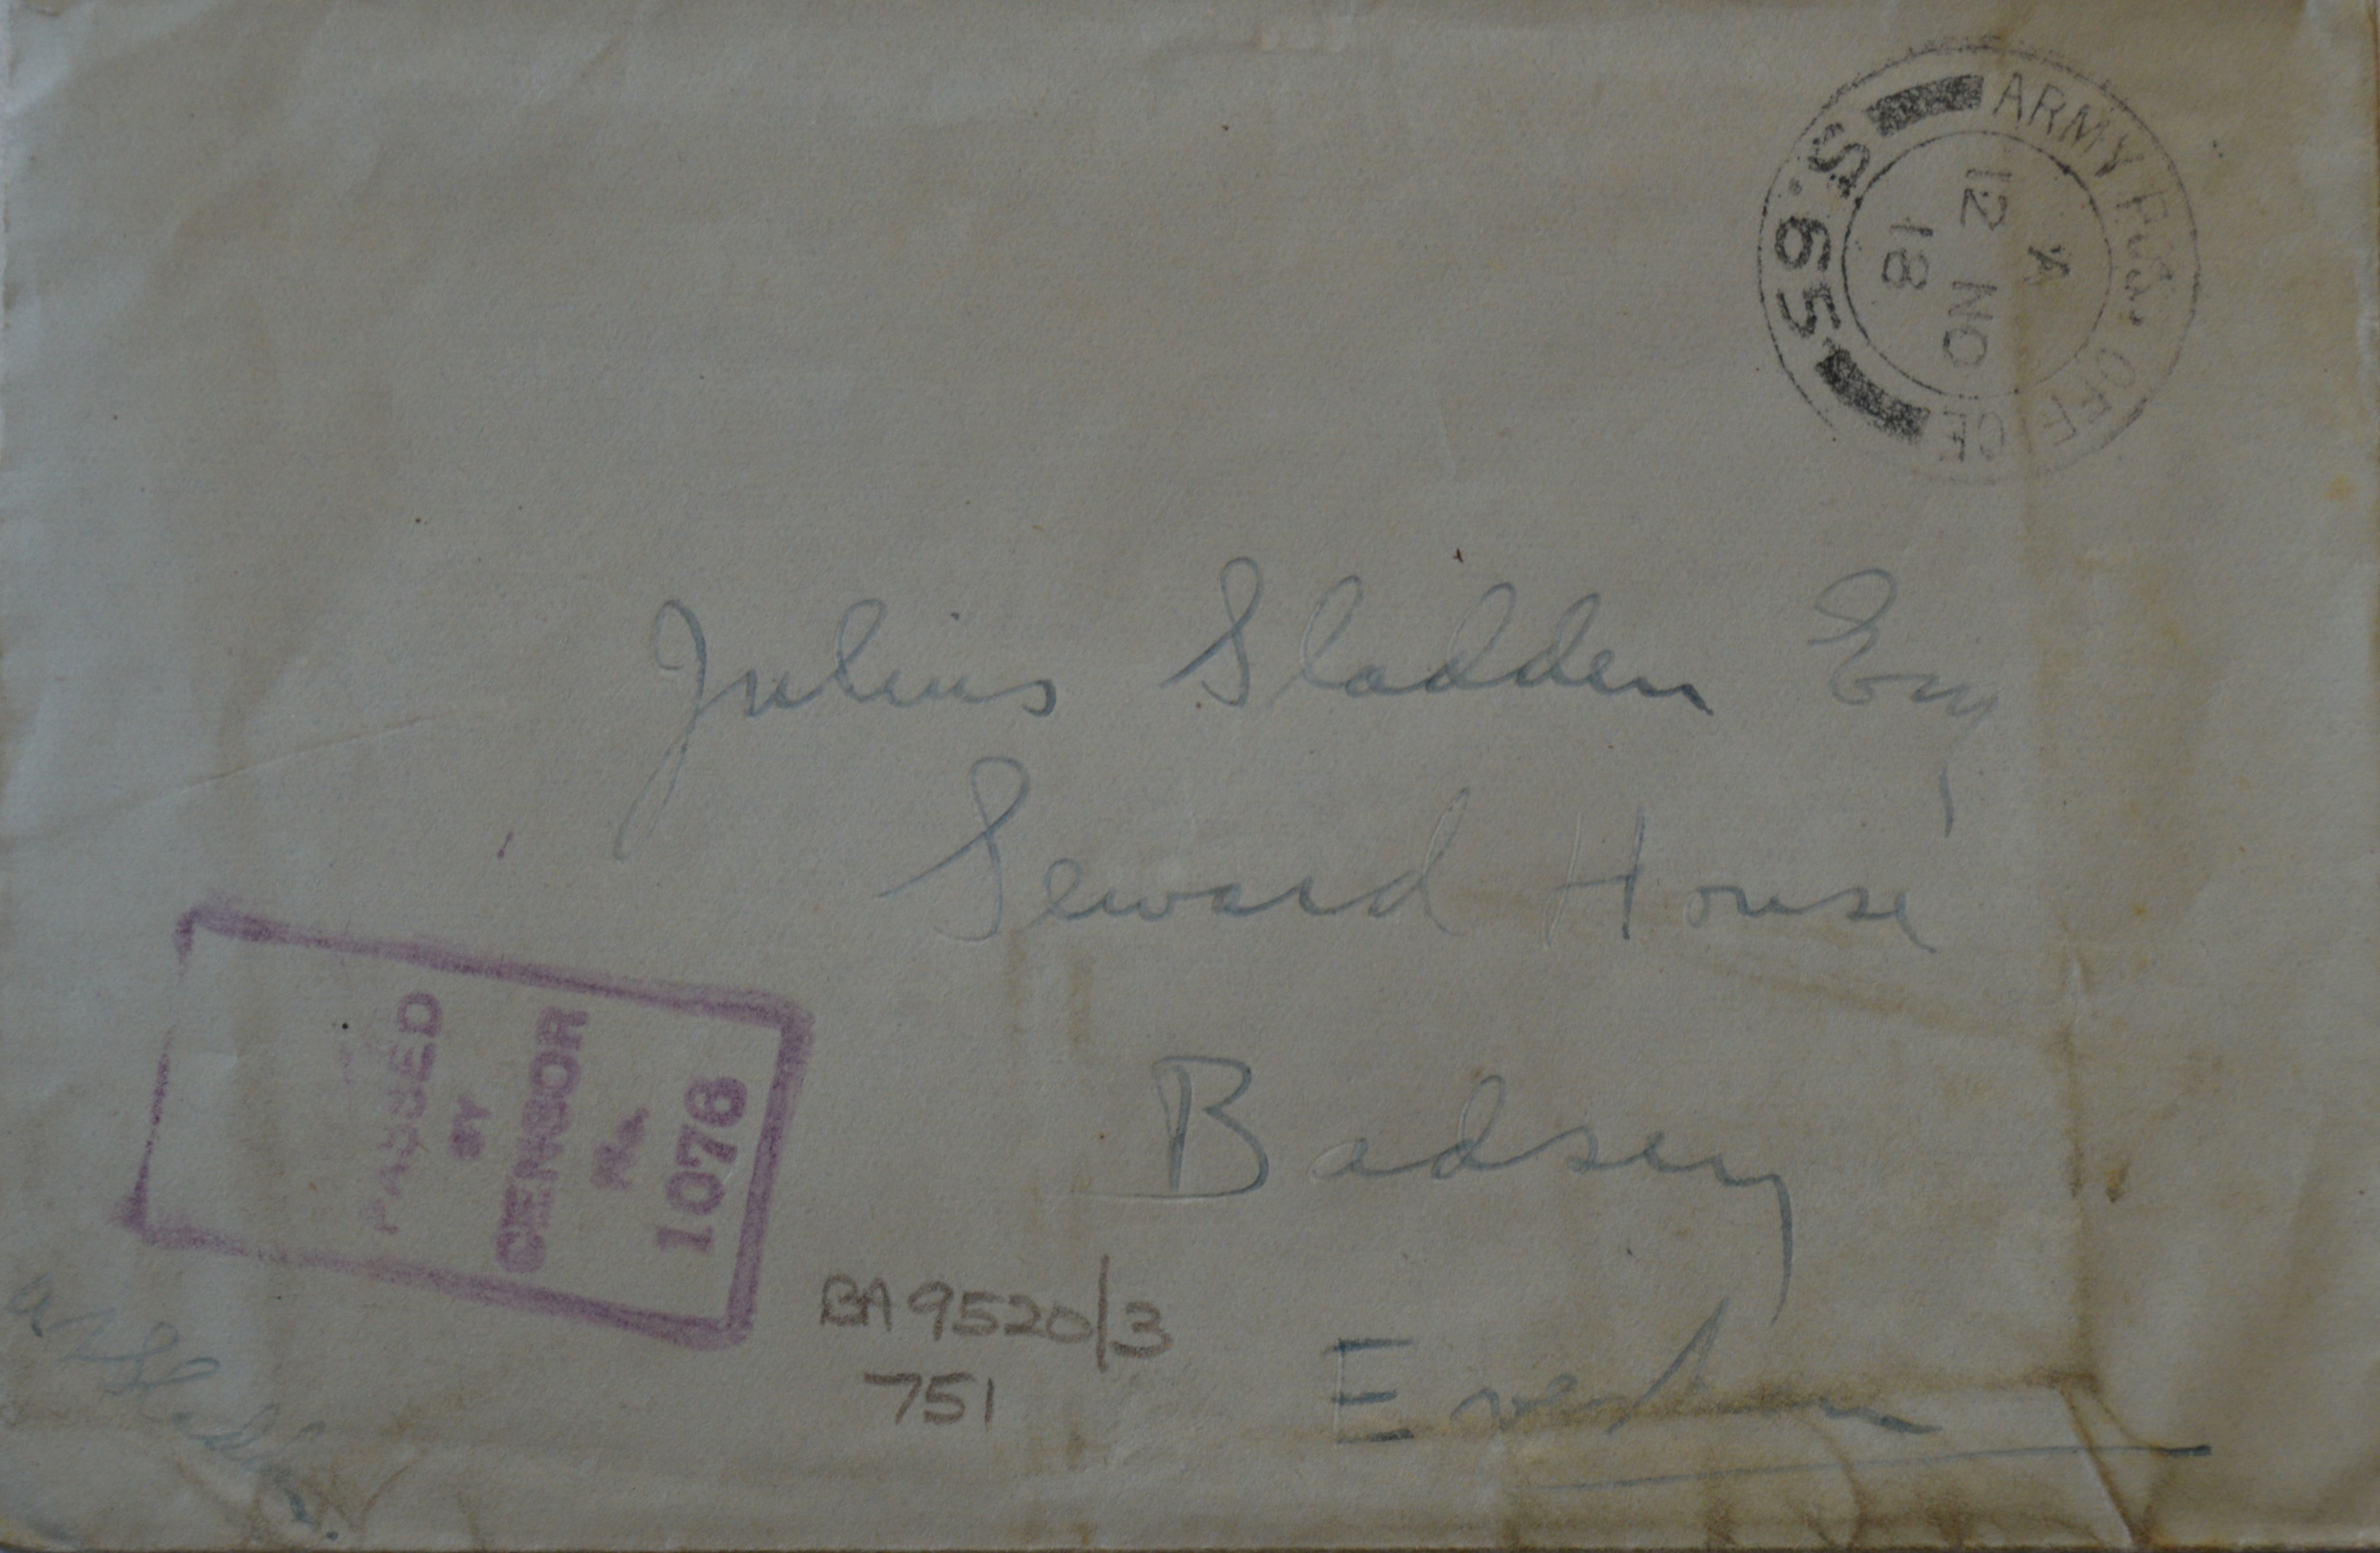 ARMY POST OFFICE
S.65
A
12 NO
18
Julius Sladden Esq
Seward House
Badsey
Evesham
PASSED
BY
CENSOR
No.
1076
BA 9520/3
751
Sladden